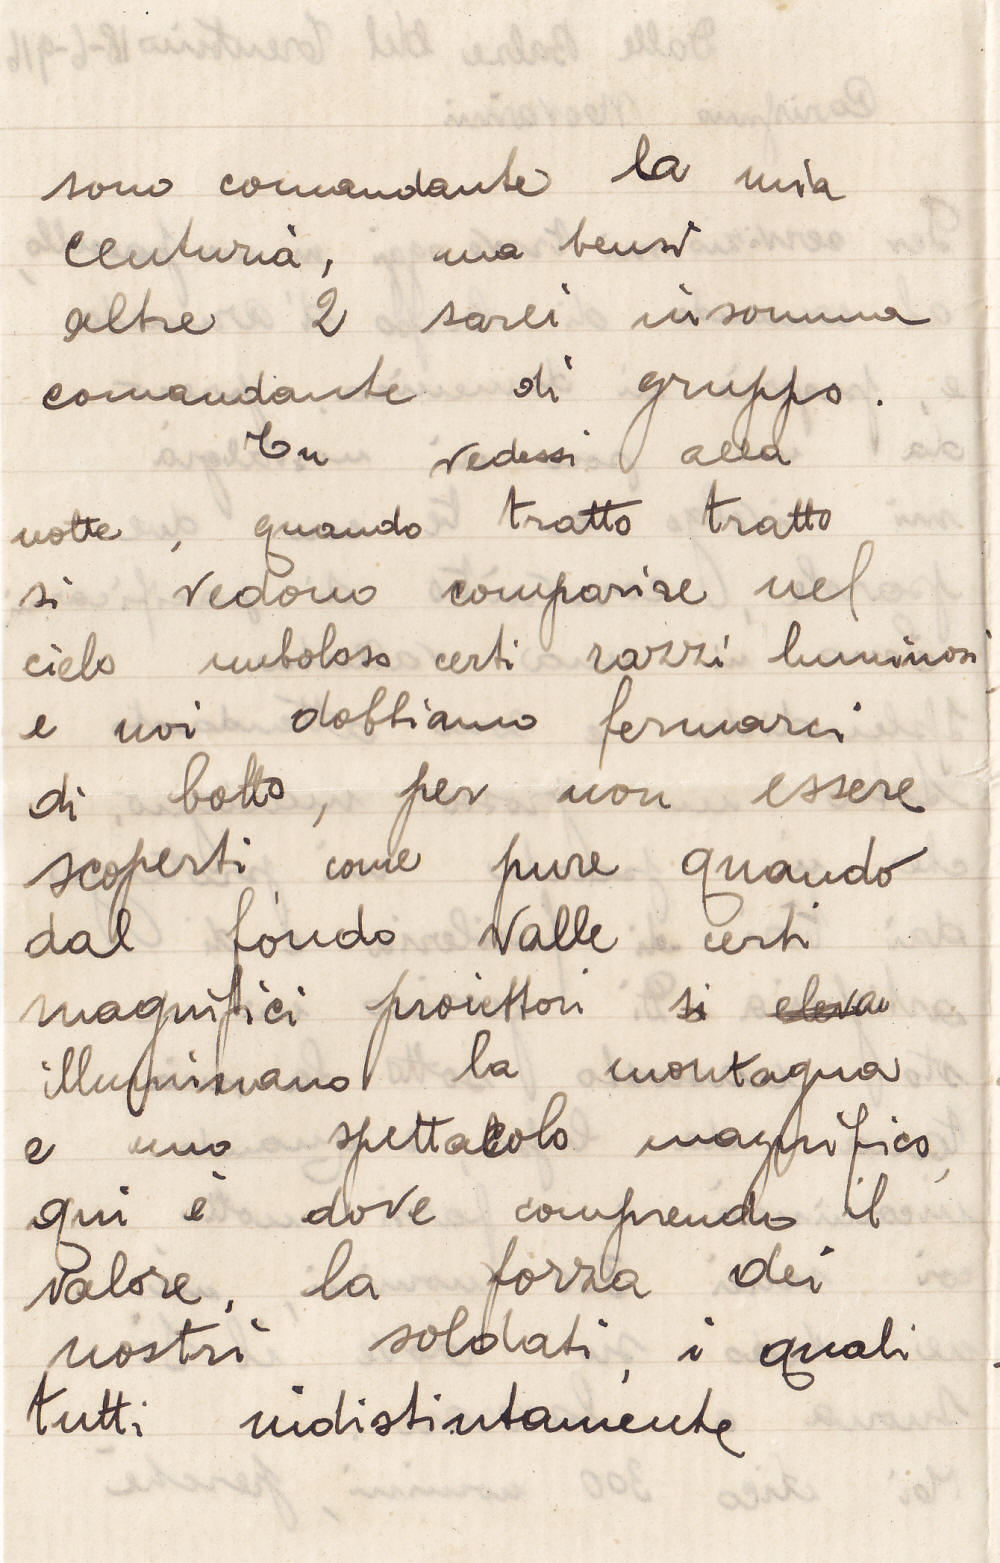 sono comandante la mia
Centuria, ma bensì
altre 2 sarei insomma
comandante di gruppo.
Tu vedessi alla
notte, quando tratto tratto
si vedono comparire nel
cielo nuboloso certi razzi luminosi,
e noi dobbiamo fermarci
di botto, per non essere
scoperti, come pure quando
dal fondo valle certi
magnifici proiettori si eleva
illuminano la montagna
e uno spettacolo magnifico,
qui è dove comprendo il
valore, la forza dei
nostri soldati, i quali
tutti indistintamente